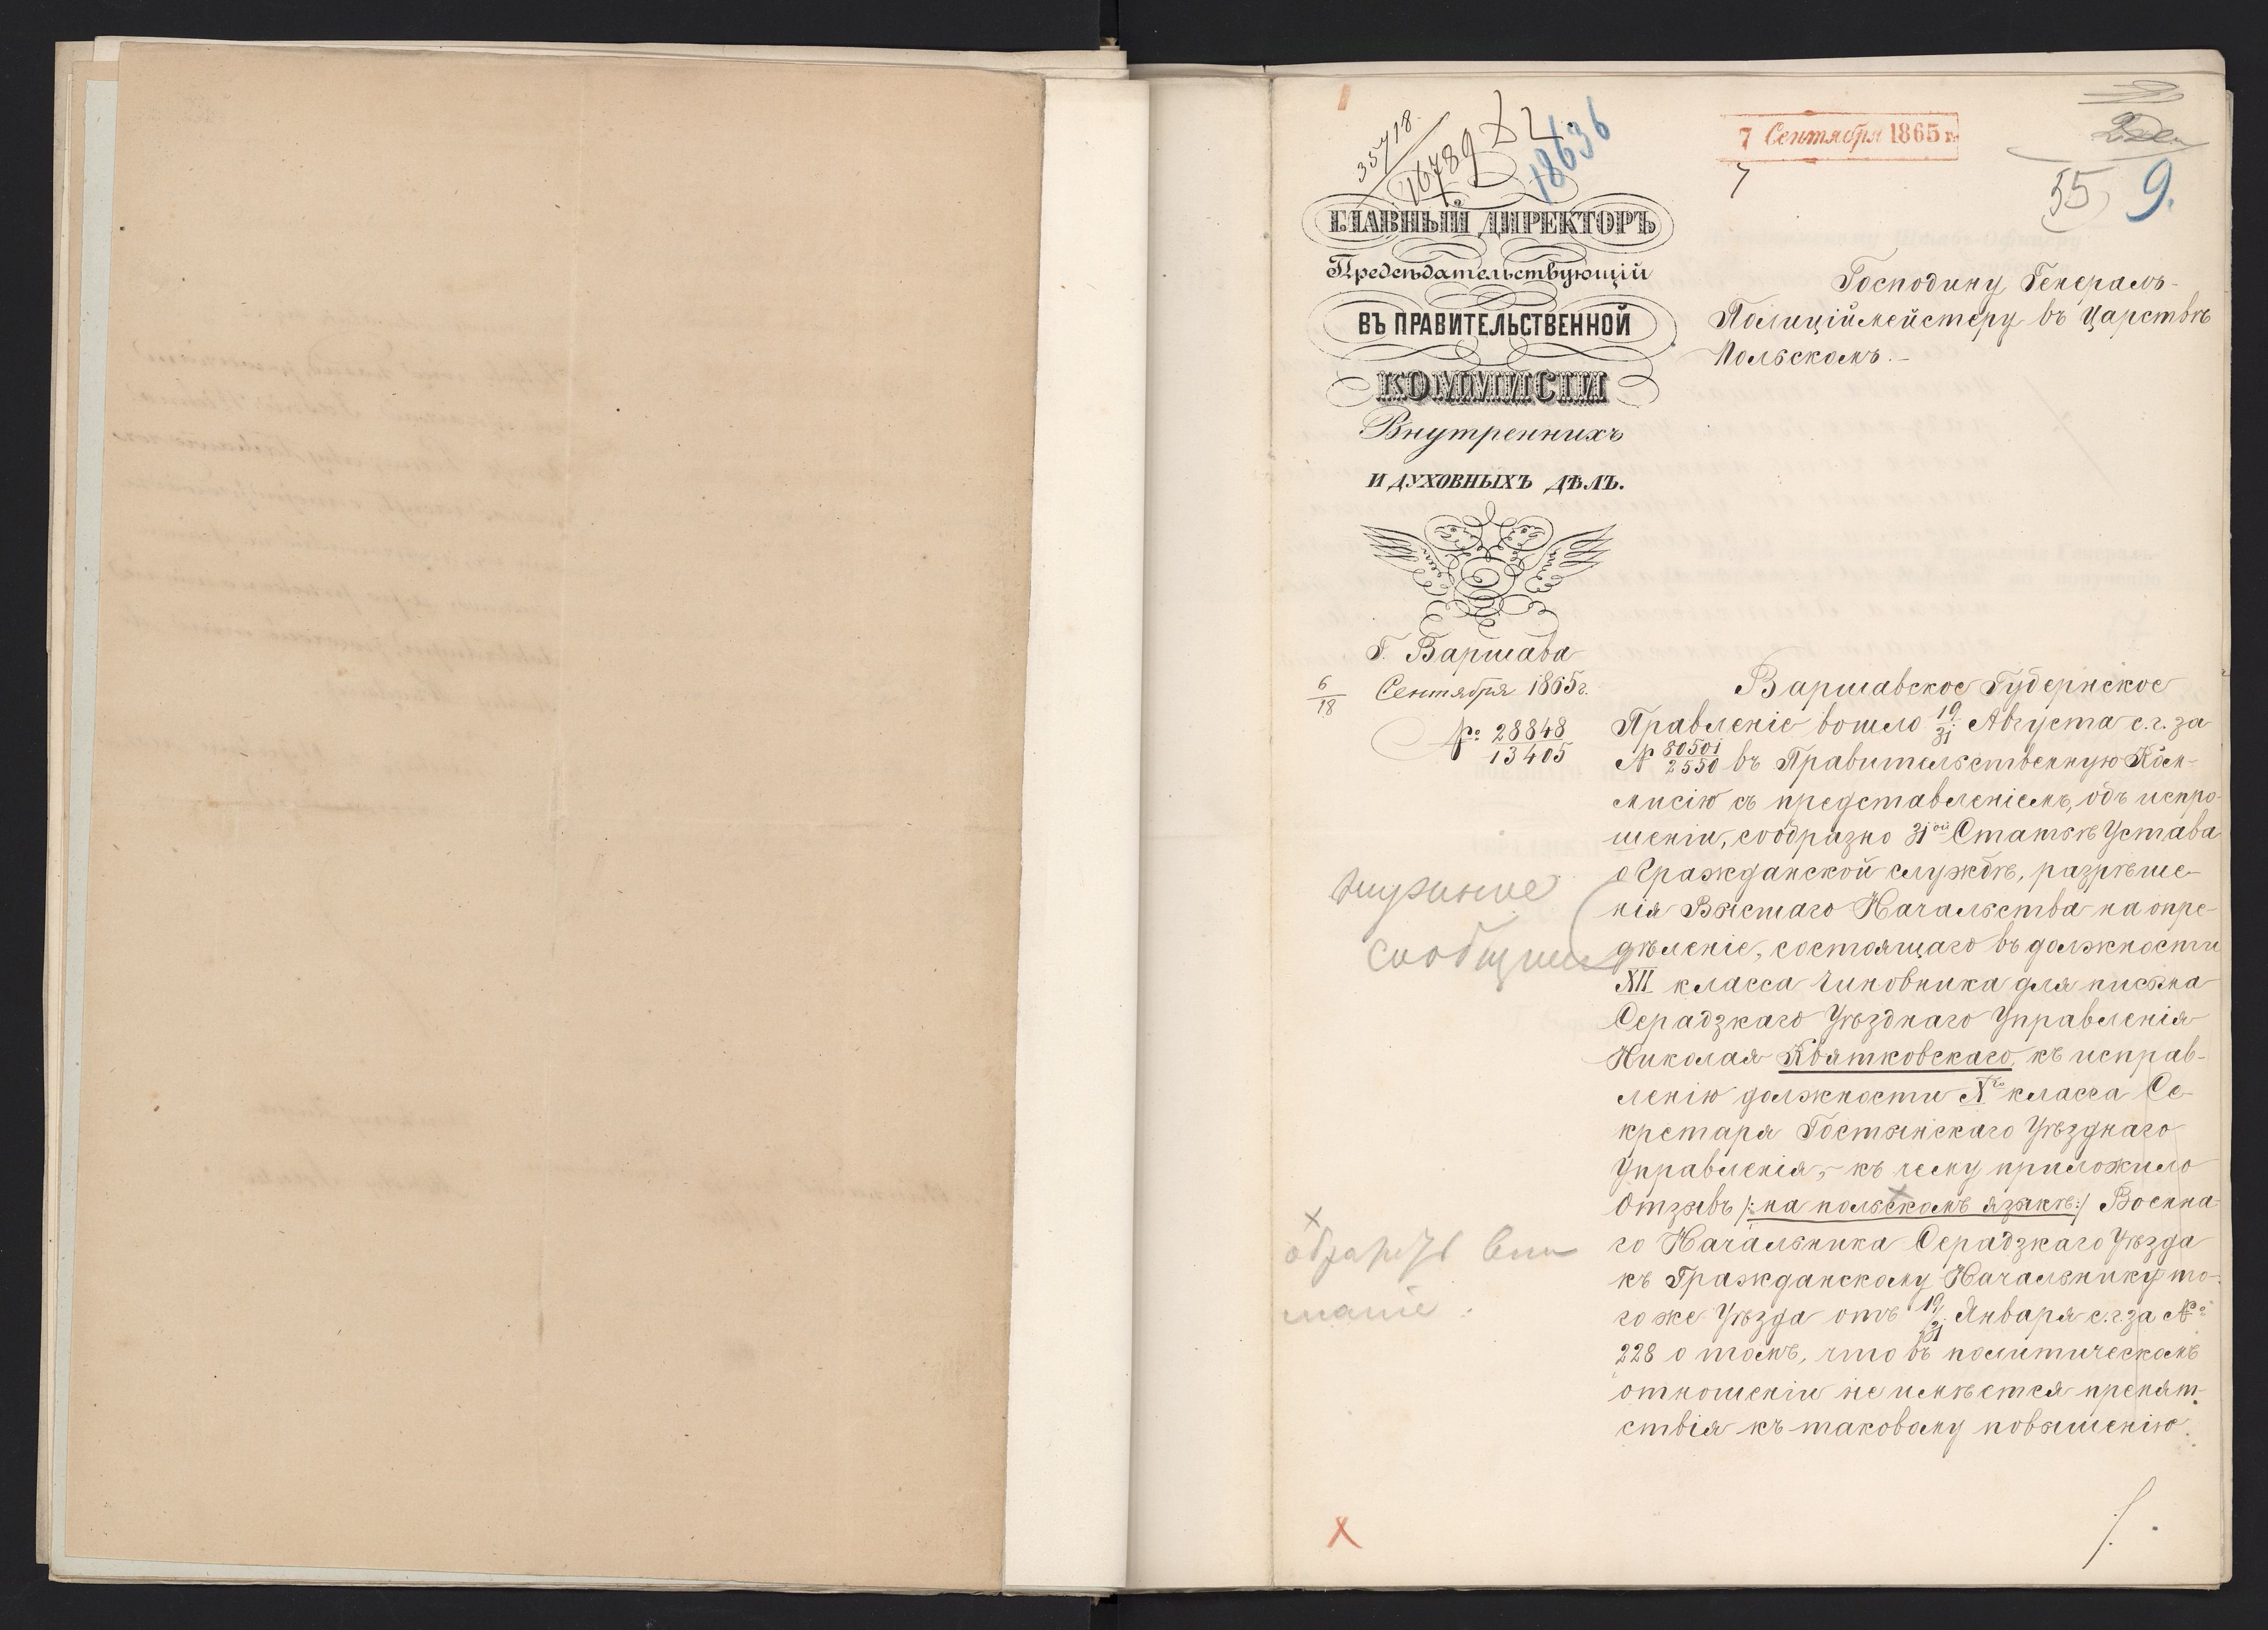 35718
16789
18636
7 Сентября 1865 г.
7
55
9.
ГЛАВНЫЙ ДИРЕКТОРЪ
Предсѣдательствующій
ВЪ ПРАВИТЕЛЬСТВЕННОЙ
КОММИСІИ
Внутреннихъ
И ДУХОВНЫХЪ ДѢЛЪ.
Г. Варшава
6/18 Сентября 1865 г.
№ 28848/13405
Господину Генералъ-
Полиціймейстеру въ Царствѣ
Польскомъ.-
Варшавское Губернское
Правленіе вошло 19/31 Августа с. г. за
№ 80501/2550 въ Правительственную Ком-
мисію съ представленіемъ, объ испро-
шеніи, сообразно 31ой Статьѣ Устава
о Гражданской службѣ, разрѣше-
нія Высшаго Начальства на опре-
дѣленіе, состоящаго въ должности
XII класса Чиновника для письма
Серадзкаго Уѣзднаго Управленія
Николая Квятковскаго, къ исправ-
ленію должности Xго класса Се-
кретаря Гостынскаго Уѣзднаго
Управленія, - къ чему приложило
Отзывъ /: на польскомъ языкѣ :/ Военна-
го Начальника Серадзкаго Уѣзда
къ Гражданскому Начальнику то-
го же Уѣзда отъ 19/31 Января с. г. за №
228 о томъ, что въ политическомъ
отношеніи не имѣется препят-
ствія къ таковому повышенію.
х
обратить вни
маніе.
х